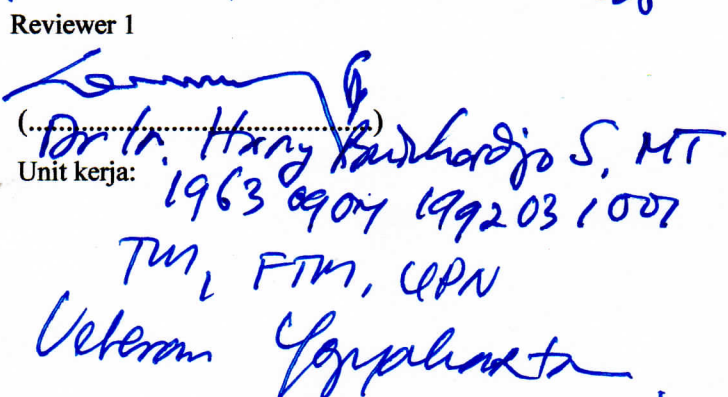 Reviewer 1
(....................................)
Dr Ir. Harry Budihardjo S, MT
Unit kerja:
1963 0904 199203 1 001
TM, FTM, UPN
Veteran Yogyakarta